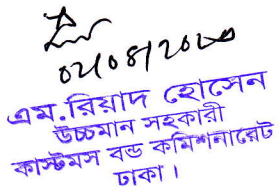 ০২/০৪/২০২০
এম.রিয়াদ হোসেন
উচ্চমান সহকারী
কাস্টমস বন্ড কমিশনারেট
ঢাকা।